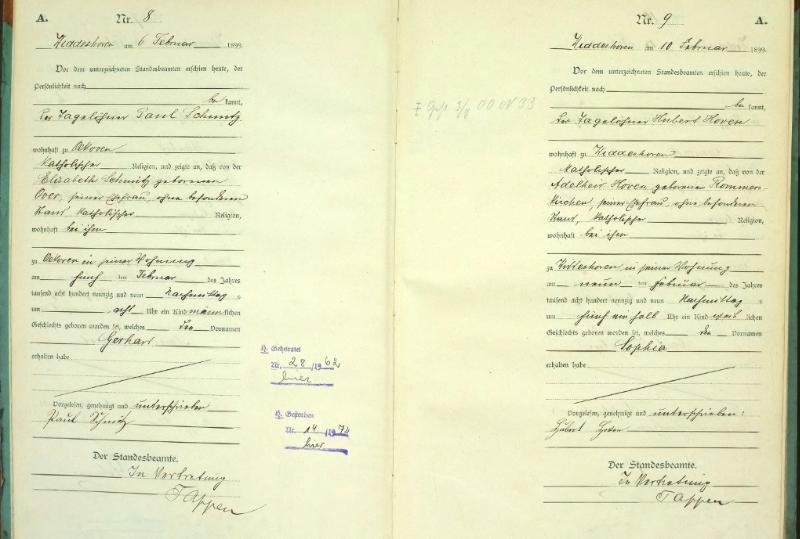 A.
Nr. 8
Hiddeshoven am 6 Februar 1899.
Vor dem unterzeichneten Standesbeamten erschien heute, der
Persönlichkeit nach
be kannt,
der Tagelöhner Paul Schmitz
wohnhaft zu Oekoven
katholischer Religion, und zeigte an, daß von der
Elisabeth Schmitz geborenen
Over, seiner Ehefrau, ohne besonderen
Stand, katholischer Religion,
wohnhaft bei ihm
zu Oekoven in seiner Wohnung
am fünf ten Februar des Jahres
tausend acht hundert neunzig und neun Nachmittags
um acht Uhr ein Kind männlichen
Geschlechts geboren worden sei, welches den Vornamen
Gerhard
erhalten habe
Vorgelesen, genehmigt und unterschrieben
Paul Schmitz
Der Standesbeamte.
In Vertretung
Tappen
H. Geheiratet
Nr. 28 /1962
hier
H. Gestorben
Nr. 14 /1974
hier
Nr. 9
A.
Hiddeshoven am 10 Februar 1899
Vor dem unterzeichneten Standesbeamten erschien heute, der
Persönlichkeit nach
be kannt,
der Tagelöhner Hubert Hoven
wohnhaft zu Hiddeshoven
katholischer Religion, und zeigte an, daß von der
Adelheid Hoven geborenen Rommers-
kirchen, seiner Ehefrau, ohne besonderen
Stand, katholischer Religion,
wohnhaft bei ihm
zu Hiddeshoven in seiner Wohnung
am neun ten Februar des Jahres
tausend acht hundert neunzig und neun Nachmittags
um fünf ein halb Uhr ein Kind weib lichen
Geschlechts geboren worden sei, welches den Vornamen
Sophia
erhalten habe
Vorgelesen, genehmigt und unterschrieben:
Hubert Hoven
Der Standesbeamte.
In Vertretung
Tappen